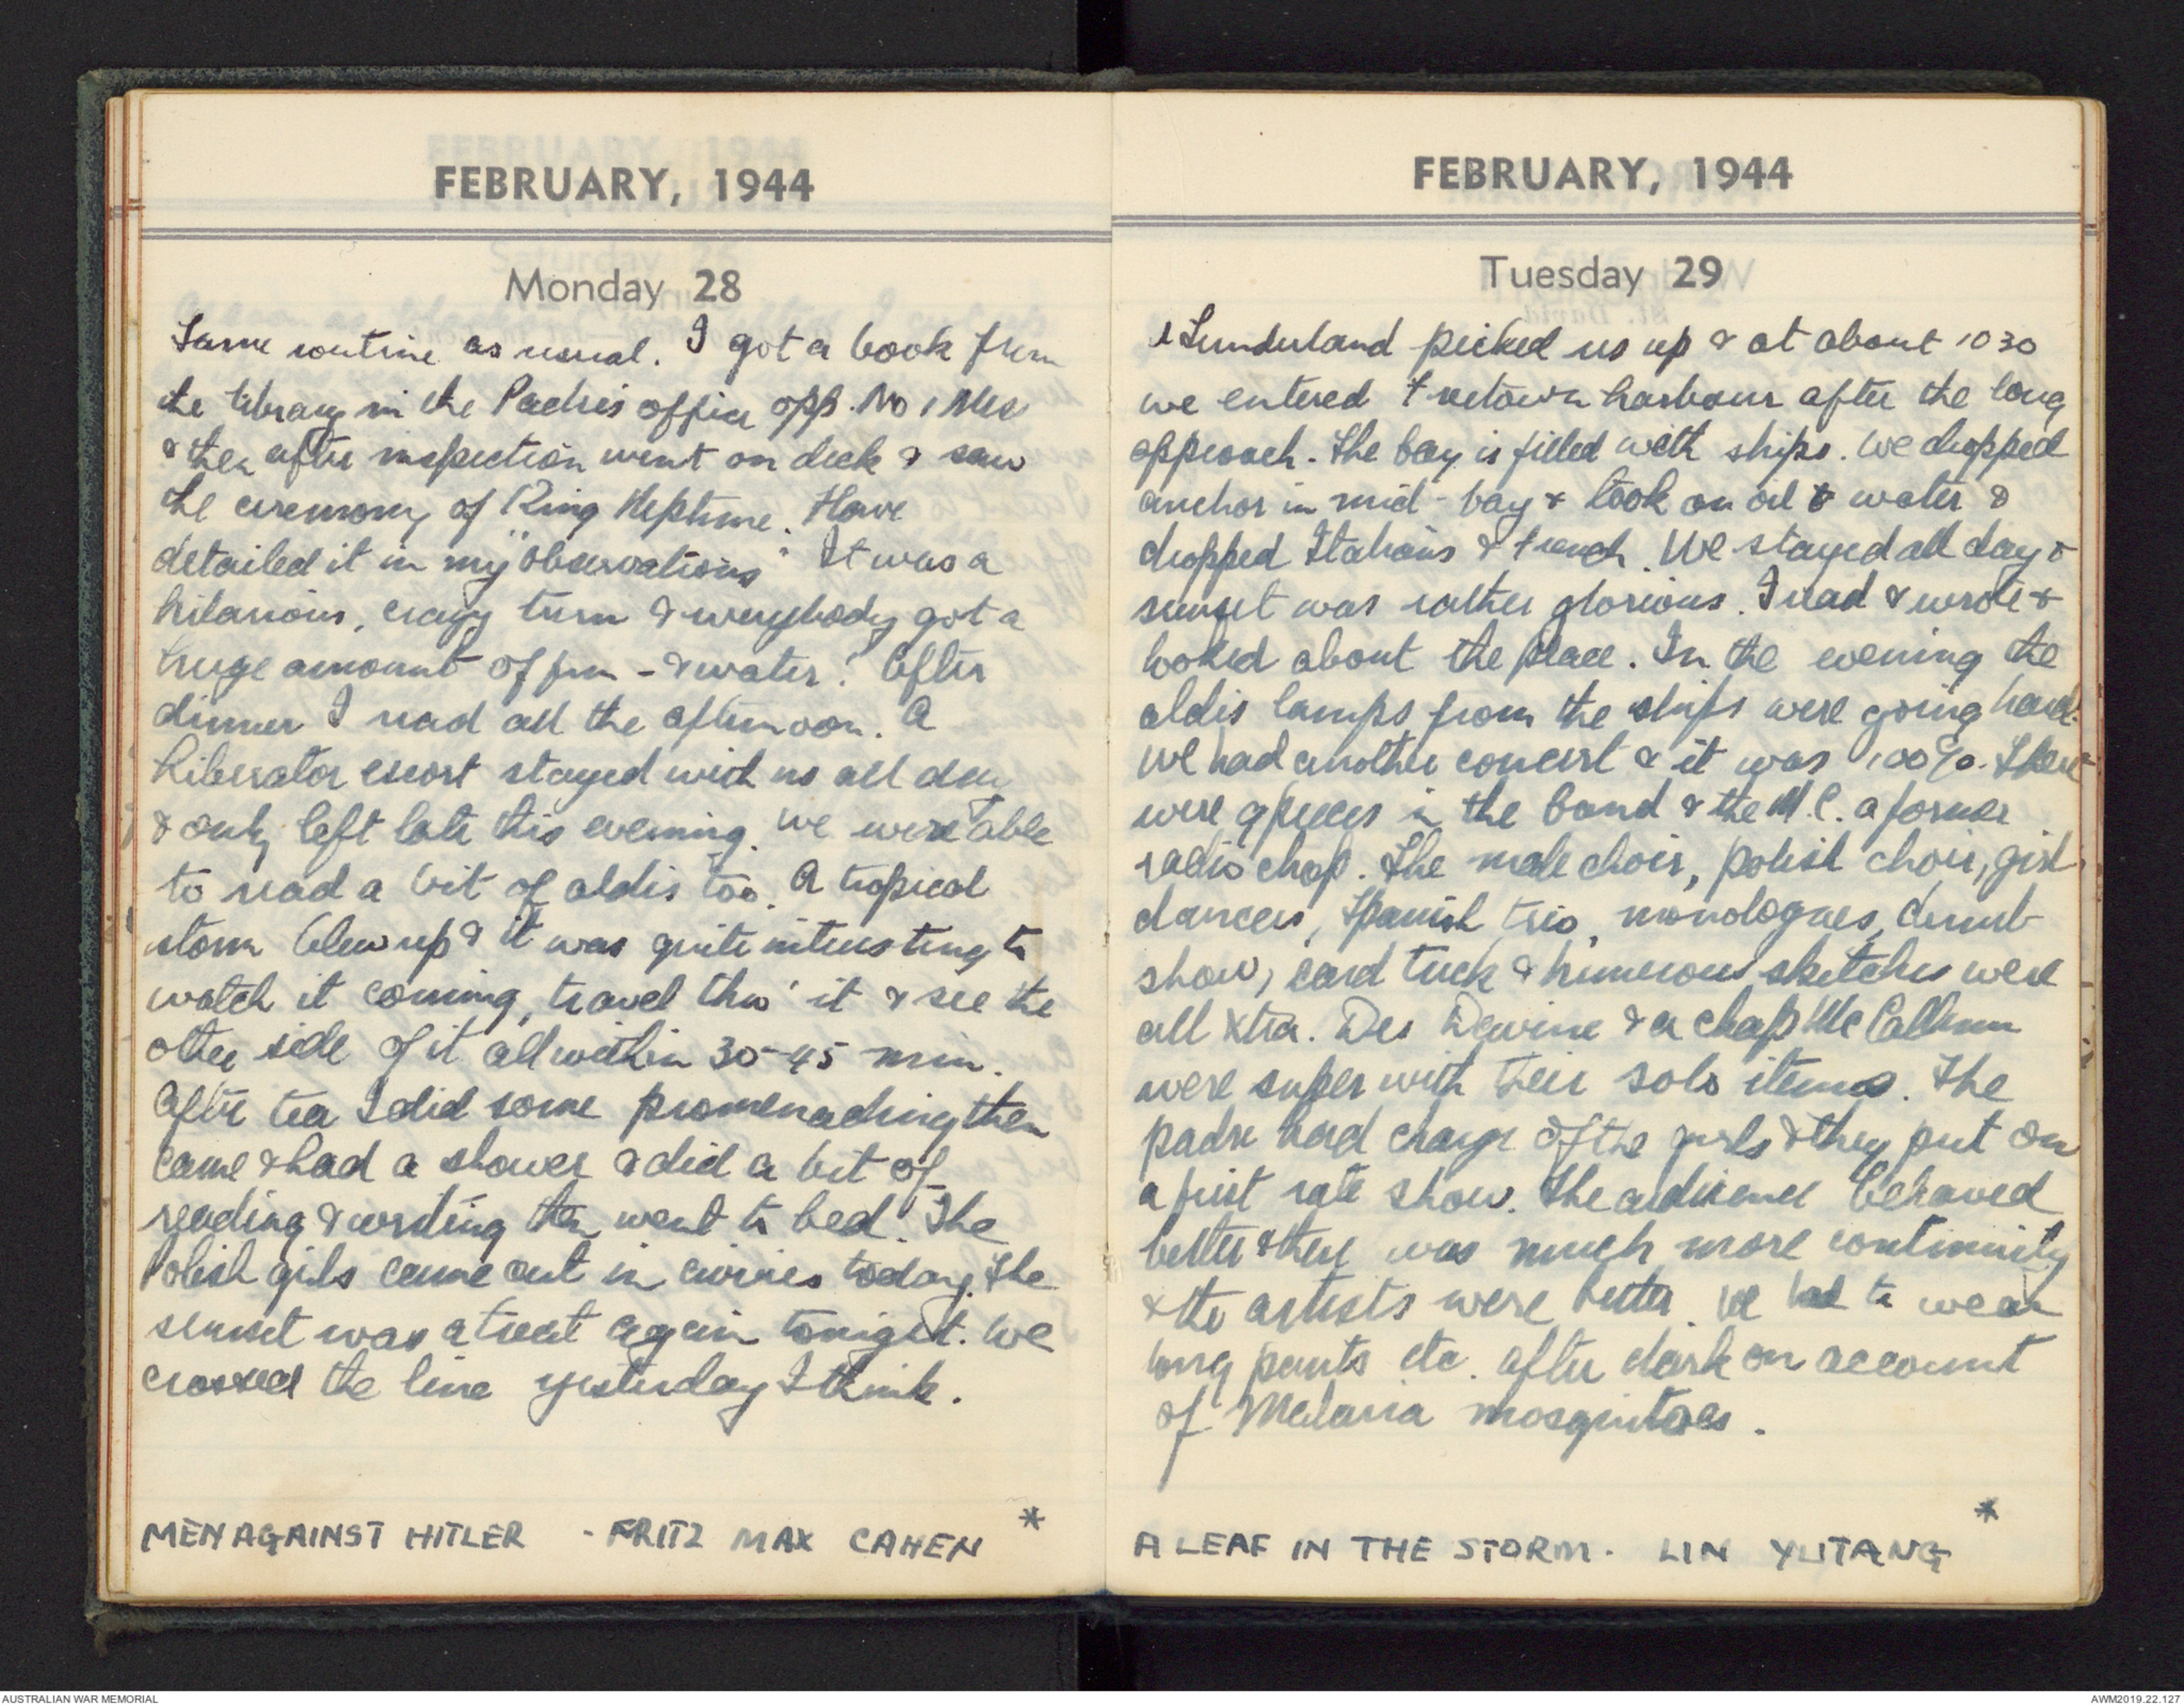 FEBRUARY, 1944
Monday 28
Same routine as usual. I got a book from
the library in the Padre's office opp. No 1 Mess
& then after inspection went on deck & saw
the ceremony of King Neptune. Have
detailed it in my "observations". It was a
hilarious, crazy turn & everybody got a
huge amount of fun - & water! After
dinner I read all the afternoon. A
Liberator escort stayed with us all day
& only left late this evening. We were able
to read a bit of aldis too. A tropical
storm blew up & it was quite interesting to
watch it coming, travel thro' it & see the
other side of it all within 30-45 min.
After tea I did some promenading then
came & had a shower & did a bit of
reading & writing then went to bed. The
Polish girls came out in civvies today. The
sunset was a treat again tonight. We
crossed the line yesterday I think.
MEN AGAINST HITLER - FRITZ MAX CAHEN *
FEBRUARY, 1944
Tuesday 29
A Sunderland picked us up & at about 1030
we entered Freetown harbour after the long
approach. The bay is filled with ships. We dropped
anchor in mid-bay & took on oil & water &
dropped Italians & French. We stayed all day &
sunset was rather glorious. I read & wrote &
looked about the place. In the evening the
aldis lamps from the ships were going hard.
We had another concert & it was 100%. There
were 9 pieces in the band & the M.C. a former
radio chap. The male choir, polish choir, girl
dancers, Spanish trio, monologues, dumb
show, card trick & humerous sketches were
all xtra. Des Devine & a chap McCallum
were super with their solo items. The
padre had charge of the girls & they put on
a first rate show. The audience behaved
better & there was much more continuity
& the artists were better. We had to wear
long pants etc. after dark on account
of Malaria mosquitoes.
A LEAF IN THE STORM. LIN YUTANG *
AUSTRALIAN WAR MEMORIAL
AWM2019.22.127